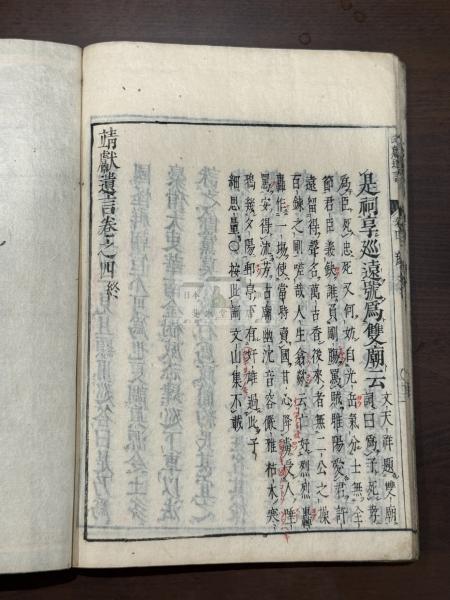 是祠享巡遠號爲雙廟云
文天祥題雙廟
詞曰爲子死孝
爲臣死忠死又何妨自光岳氣分士無全
節君臣義缺誰負剛腸罵賊睢陽愛君許
遠留得聲名萬古香後來者無二公之操
百鍊之剛嗟哉人生翕歘云亡好烈烈轟
轟作一場使當時賣國甘心降虜受人唾
罵安得流芳古廟幽沈音容儼雅枯木寒
鴉幾夕陽郵亭下有奸雄過此子
細思量○按此詞文山集不載
靖獻遺言卷之四終